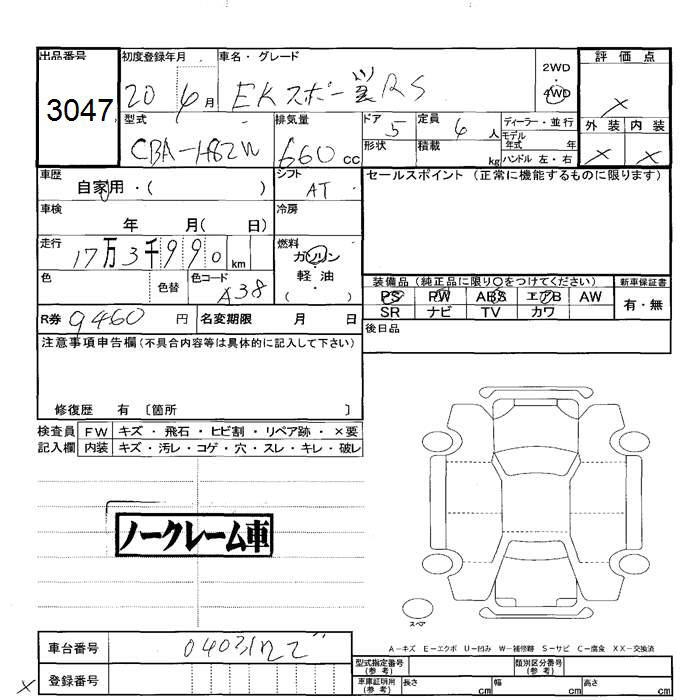 出品番号
3047
初度登録年月
20 6月
車名・グレード
EKスポーツ RS
2WD
4WD
評価点
×
外装 内装
× ×
型式
CBA-H82W
排気量
660 cc
ドア
5
形状
定員
4 人
積載
kg
ディーラー・並行
モデル年式 年
ハンドル 左・右
車歴
自家用・( )
シフト
AT
車検
年 月( 日)
冷房
走行
17万3千990 km
燃料
ガソリン・
軽・油
( )
色
色替
色コード
A38
R券 9460 円
名変期限 月 日
セールスポイント (正常に機能するものに限ります)
装備品 (純正品に限り○をつけてください)
PS PW ABS エアB AW
SR ナビ TV カワ
新車保証書
有・無
後日品
注意事項申告欄(不具合内容等は具体的に記入して下さい)
修復歴 有 〔箇所 〕
検査員
記入欄
FW キズ・飛石・ヒビ割・リペア跡・×要
内装 キズ・汚レ・コゲ・穴・スレ・キレ・破レ
ノークレーム車
スペア
A-キズ E-エクボ U-凹み W-補修跡 S-サビ C-腐食 XX-交換済
車台番号
登録番号
×
型式指定番号
(参考)
類別区分番号
(参考)
車庫証明用
(参考)
長さ cm
幅 cm
高さ cm